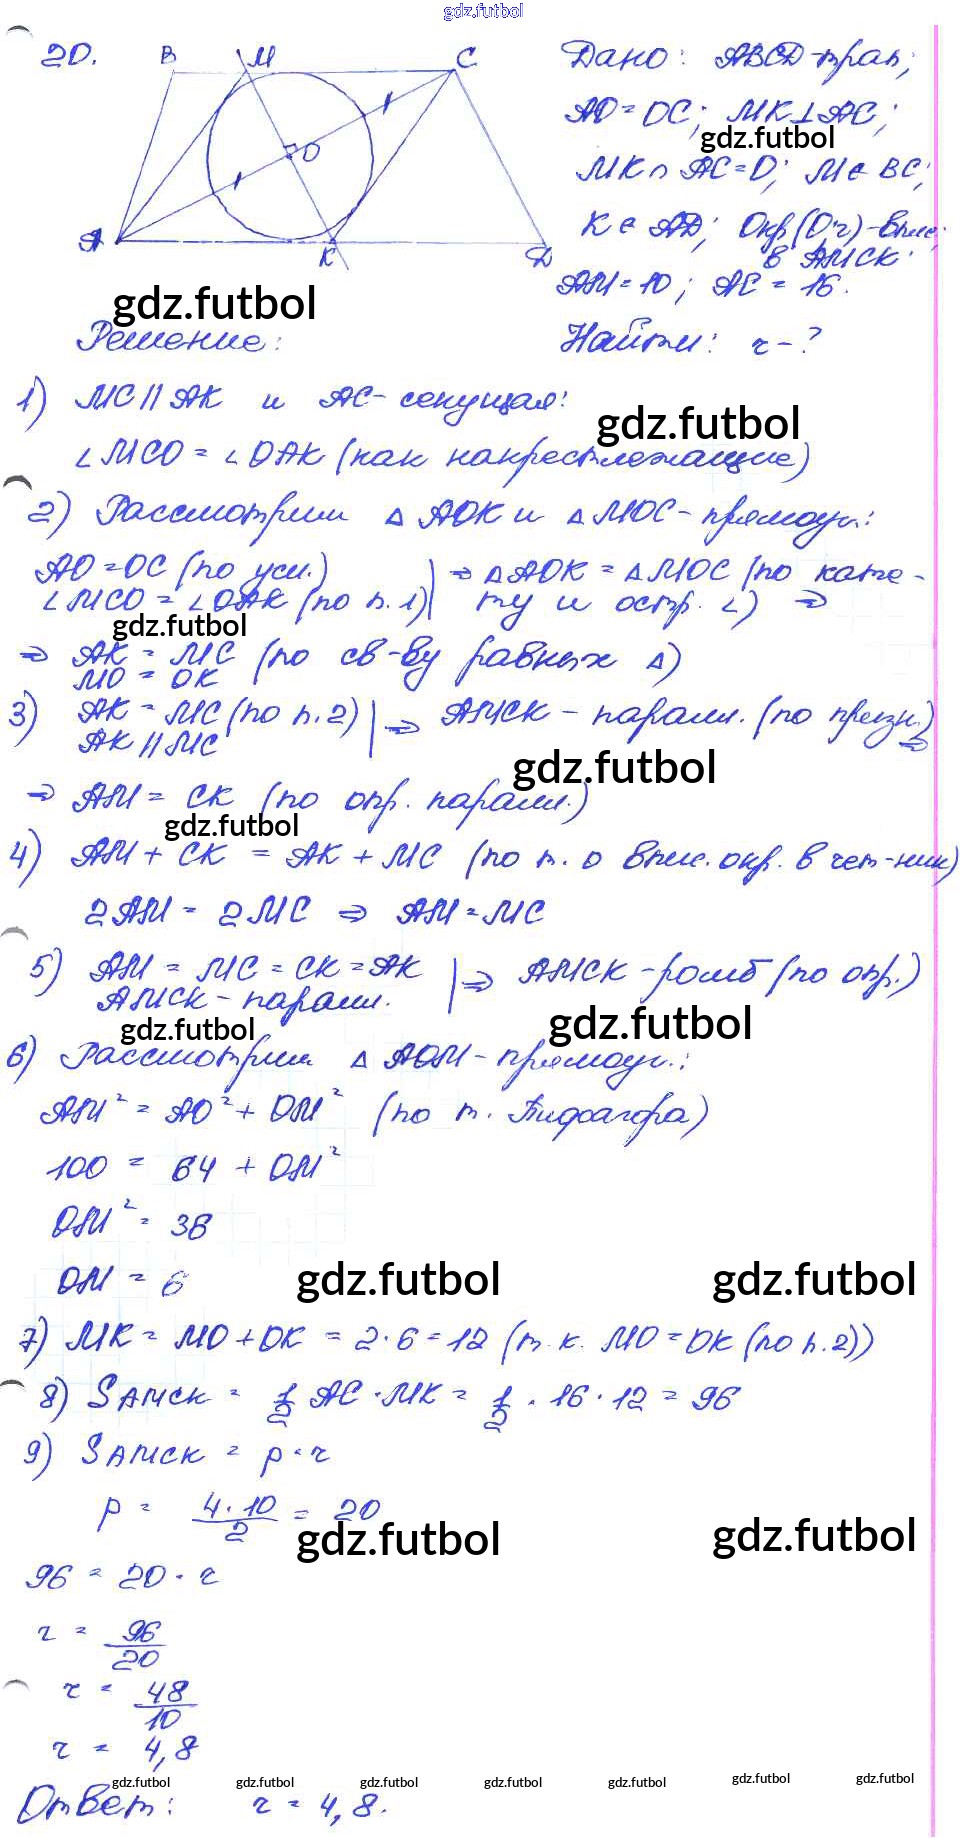 gdz.futbol
20.
B M C
O
A K D
Дано: ABCD-трап;
AO=OC; MK⊥AC;
gdz.futbol
MK∩AC=O; M∈BC;
K∈AD; Окр(O;r)-впис;
в AMCK.
AM=10; AC=16.
gdz.futbol
Решение:
Найти: r-?
1) MC || AK и AC-секущая:
gdz.futbol
∠MCO = ∠OAK (как накрестлежащие)
2) Рассмотрим △AOK и △MOC-прямоуг.:
AO=OC (по усл.) | ⇒ △AOK = △MOC (по кате-
∠MCO = ∠OAK (по п.1) | ту и остр. ∠) ⇒
gdz.futbol
⇒ AK = MC (по св-ву равных △)
MO = OK
3) AK = MC (по п.2) | ⇒ AMCK - паралл. (по призн.) ⇒
AK || MC
gdz.futbol
⇒ AM = CK (по опр. паралл.)
gdz.futbol
4) AM + CK = AK + MC (по т. о впис. окр. в чет-ник)
2AM = 2MC ⇒ AM=MC
5) AM = MC = CK = AK | ⇒ AMCK-ромб (по опр.)
AMCK-паралл.
gdz.futbol
gdz.futbol
6) Рассмотрим △AOM-прямоуг.:
AM² = AO² + OM² (по т. Пифагора)
100 = 64 + OM²
OM² = 36
OM = 6
gdz.futbol gdz.futbol
7) MK = MO + OK = 2·6 = 12 (т.к. MO=OK (по п.2))
8) SAMCK = 1/2 AC·MK = 1/2 · 16 · 12 = 96
9) SAMCK = p·r
p = 4·10/2 = 20
gdz.futbol gdz.futbol
96 = 20·r
r = 96/20
r = 48/10
r = 4,8
gdz.futbol gdz.futbol gdz.futbol gdz.futbol gdz.futbol gdz.futbol gdz.futbol
Ответ: r = 4,8.